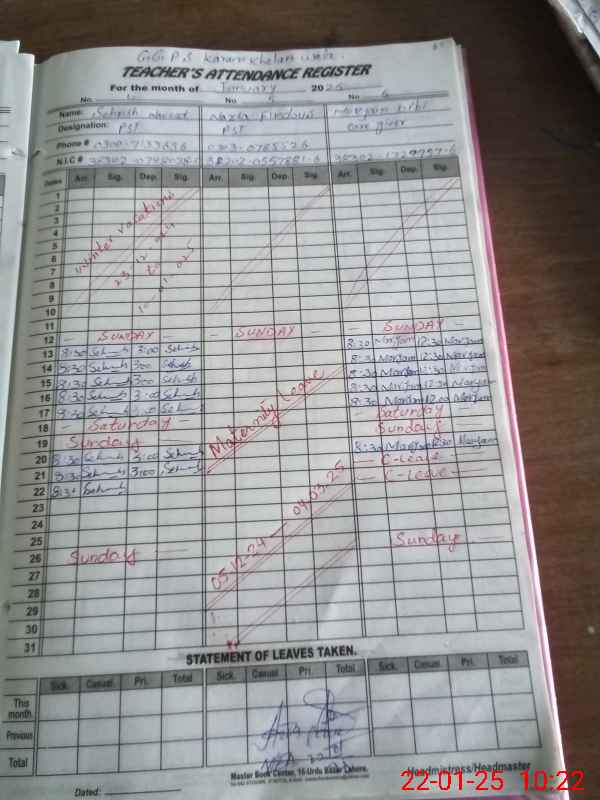 G.G.P.S Karam Khelan wala.
TEACHER'S ATTENDANCE REGISTER
For the month of January 2025
No. 4 No 5 No. 6
Name: Sehrish Nazia Firdous Marjam Bibi
Designation: PST PST care giver
Phone # 0300-7133636 0303-0785526
N.I.C #
Dates Arr. Sig. Dep. Sig. Arr. Sig. Dep. Sig. Arr. Sig. Dep. Sig.
1
2
3
4
5
6
7
8
9
10
winter vacations
23-12-024
to
10-01-025
11
12 SUNDAY SUNDAY SUNDAY
13 8:30 Sehrish 3:00 Sehrish 8:30 Marjam 12:30 Marjam
14 8:30 Sehrish 3:00 Sehrish 8:30 Marjam 12:30 Marjam
15 8:30 Sehrish 3:00 Sehrish 8:30 Marjam 12:30 Marjam
16 8:30 Sehrish 3:00 Sehrish 8:30 Marjam 12:30 Marjam
17 8:30 Sehrish 3:00 Sehrish 8:30 Marjam 12:00 Marjam
18 Saturday Saturday
19 Sunday Sunday
20 8:30 Sehrish 3:00 Sehrish 8:30 Marjam 12:30 Marjam
21 8:30 Sehrish 3:00 Sehrish C-Leave
22 8:30 Sehrish C-Leave
Maternity Leave
05-12-24 — 04-03-25
23
24
25
26 Sunday Sunday
27
28
29
30
31
STATEMENT OF LEAVES TAKEN.
Sick. Casual. Pri. Total Sick. Casual. Pri. Total Sick. Casual. Pri. Total
This month.
Previous
Total
Master Book Center, 16-Urdu Bazar Lahore.
Headmistress/Headmaster
Dated:
22-01-25 10:22